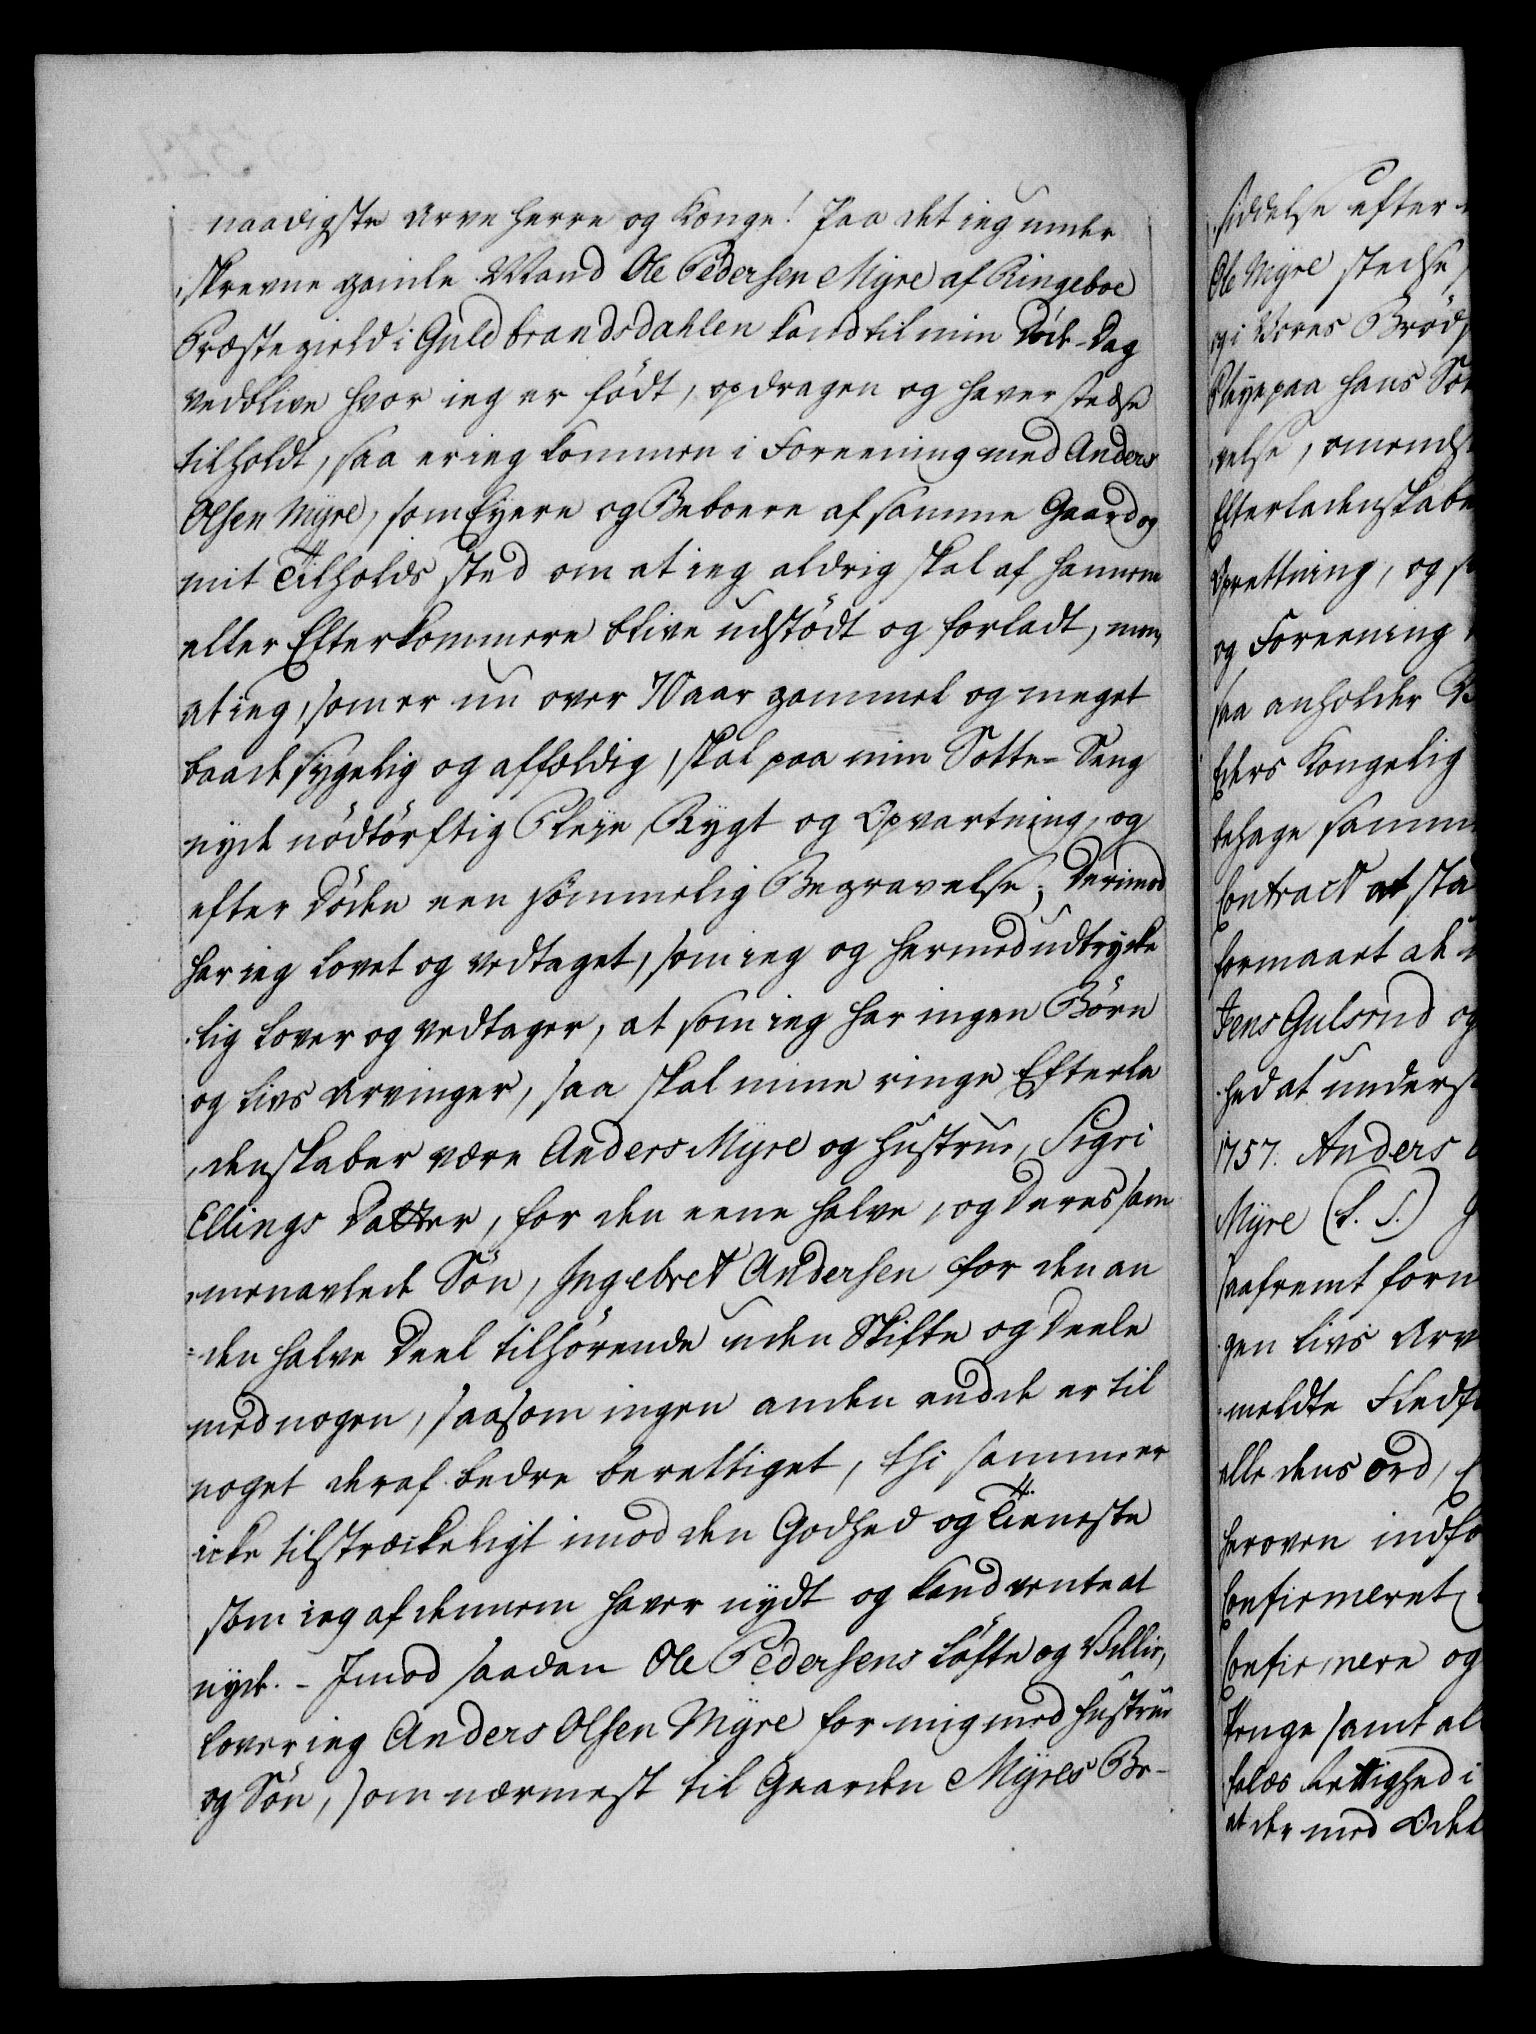 naadigste Arve Herre og Konge! Paa det ieg under
skrevne gamle Mand Ole Pedersen Myre af Ringeboe
Præstegield i Guldbrandsdahlen kand til min Döde-Dag
vedblive hvor ieg er födt, opdragen og haver stedse
tilholdt, saa er ieg kommen i Foreening med Anders
Olsen Myre, som Eyere og Beboere af samme Gaard og
mit Tilholds sted om at ieg aldrig skal af hannem
eller Efterkommere blive udstödt og forladt, men,
at ieg, som er nu over 70 aar gammel og meget
baade sygelig og affældig, skal paa min Sotte-Seng
nyde nödtörftig Pleye Rygt og Opvartning, og
efter Döden een sömmelig Begravelse; Derimod
har ieg lovet og vedtaget, som ieg og hermed udtrycke
lig lover og vedtager, at som ieg har ingen Börn
og Livs Arvinger, saa skal mine ringe Efterla
denskaber være Anders Myre og Hustrue, Sigri
Ellings Datter, for den eene halve, og Deres sam
menavlede Sön, Ingebret Andersen for den an
den halve Deel tilhörende uden Skifte og Deele
med nogen, saasom ingen anden endde er til
noget deraf bedre berettiget, thi samme er
icke tilstræckeligt imod den Godhed og Tieneste
som ieg af dennem haver nydt og kand vente at
nyde. - Imod saadan Ole Pedersens Löfte og Villie,
lover ieg Anders Olsen Myre for mig med Hustrue
og Sön, som nærmest til Gaarden Myres Be-
siddelse efter
Ole Myre stedse
og i Vores Bröd
Pleye paa hans
velse, omendsk
Efterladenskabe
Oprettning, og
og Foreening
saa anholder
Eders Kongelig
behage samm
Contract at sta
formaaet at
Jens Gulsrud og
hed at unders
1757. Anders
Myre (L. S.)
saafremt forn
gen Livs Arv
meldte Fledf
alle dens Ord,
heroven indfö
Confirmeret
Confirmere og
Penge samt al
Rettighed i
at der med Odel